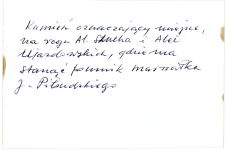 Kamień oznaczający miejsce,
na rogu Al. Szucha i Alei
Ujazdowskich, gdzie ma
stanąć pomnik marszałka
J. Piłsudskiego